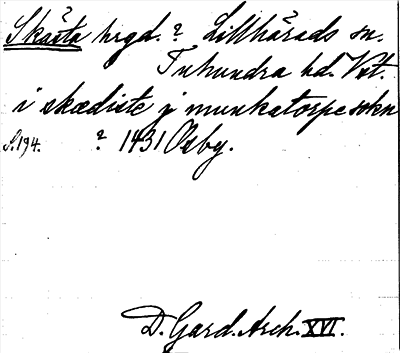 Skästa hrgd. ? Lillhärads sn.
Tuhundra hd. Vst.
i skædiste j munkatorpe sokn
S. 194. ? 1431 Osby.
D. Gard. Arch. XVI.